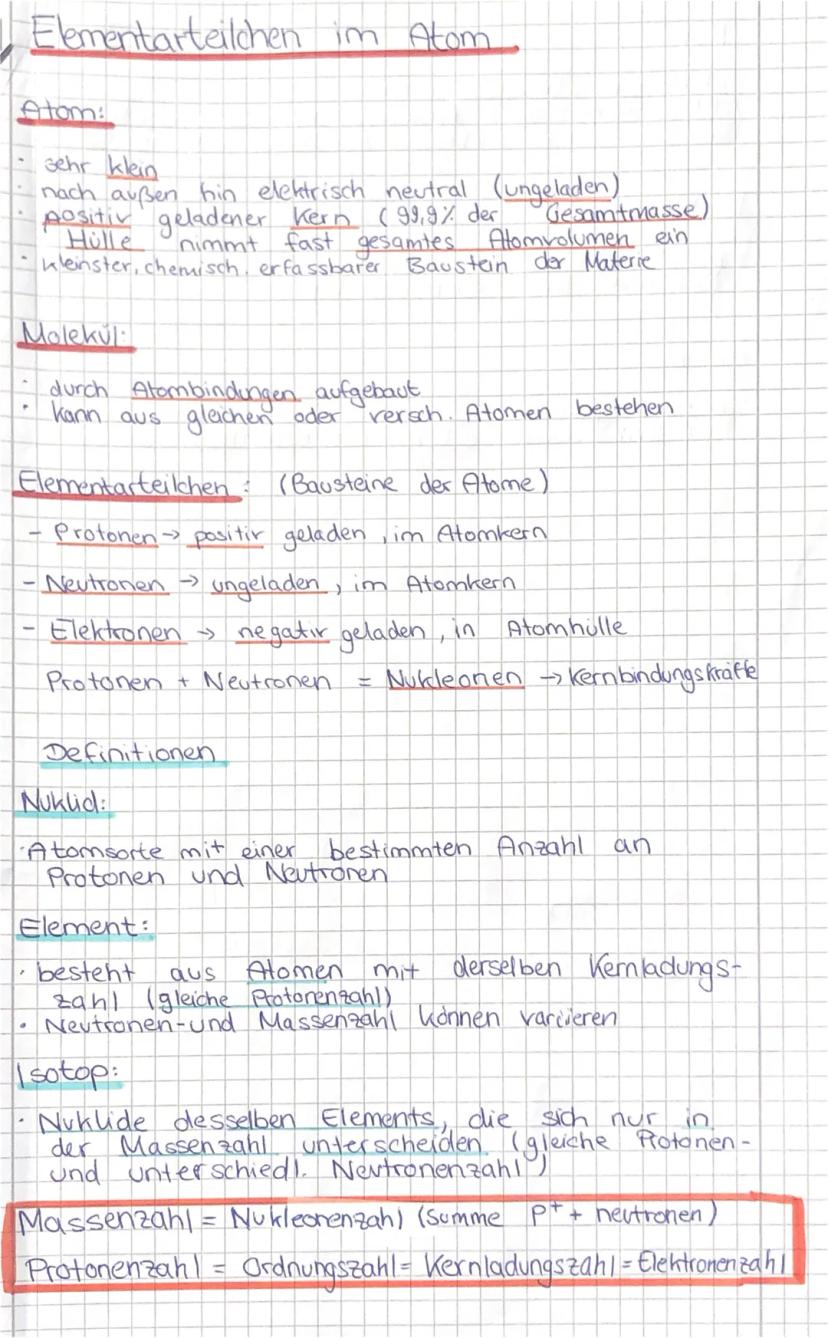 Elementarteilchen im Atom
Atom:
· sehr klein
· nach außen hin elektrisch neutral (ungeladen)
· positiv geladener Kern (99,9% der Gesamtmasse)
· Hülle nimmt fast gesamtes Atomvolumen ein
· kleinster, chemisch erfassbarer Baustein der Materie
Molekül:
· durch Atombindungen aufgebaut
· kann aus gleichen oder versch. Atomen bestehen
Elementarteilchen: (Bausteine der Atome)
- Protonen → positiv geladen, im Atomkern
- Neutronen → ungeladen, im Atomkern
- Elektronen → negativ geladen, in Atomhülle
Protonen + Neutronen = Nukleonen → Kernbindungskräfte
Definitionen
Nuklid:
· Atomsorte mit einer bestimmten Anzahl an
Protonen und Neutronen
Element:
· besteht aus Atomen mit derselben Kernladungs-
zahl (gleiche Protonenzahl)
· Neutronen-und Massenzahl können variieren
Isotop:
· Nuklide desselben Elements, die sich nur in
der Massenzahl unterscheiden (gleiche Protonen-
und unterschiedl. Neutronenzahl)
Massenzahl = Nukleonenzahl (Summe p⁺ + neutronen)
Protonenzahl = Ordnungszahl = Kernladungszahl = Elektronenzahl